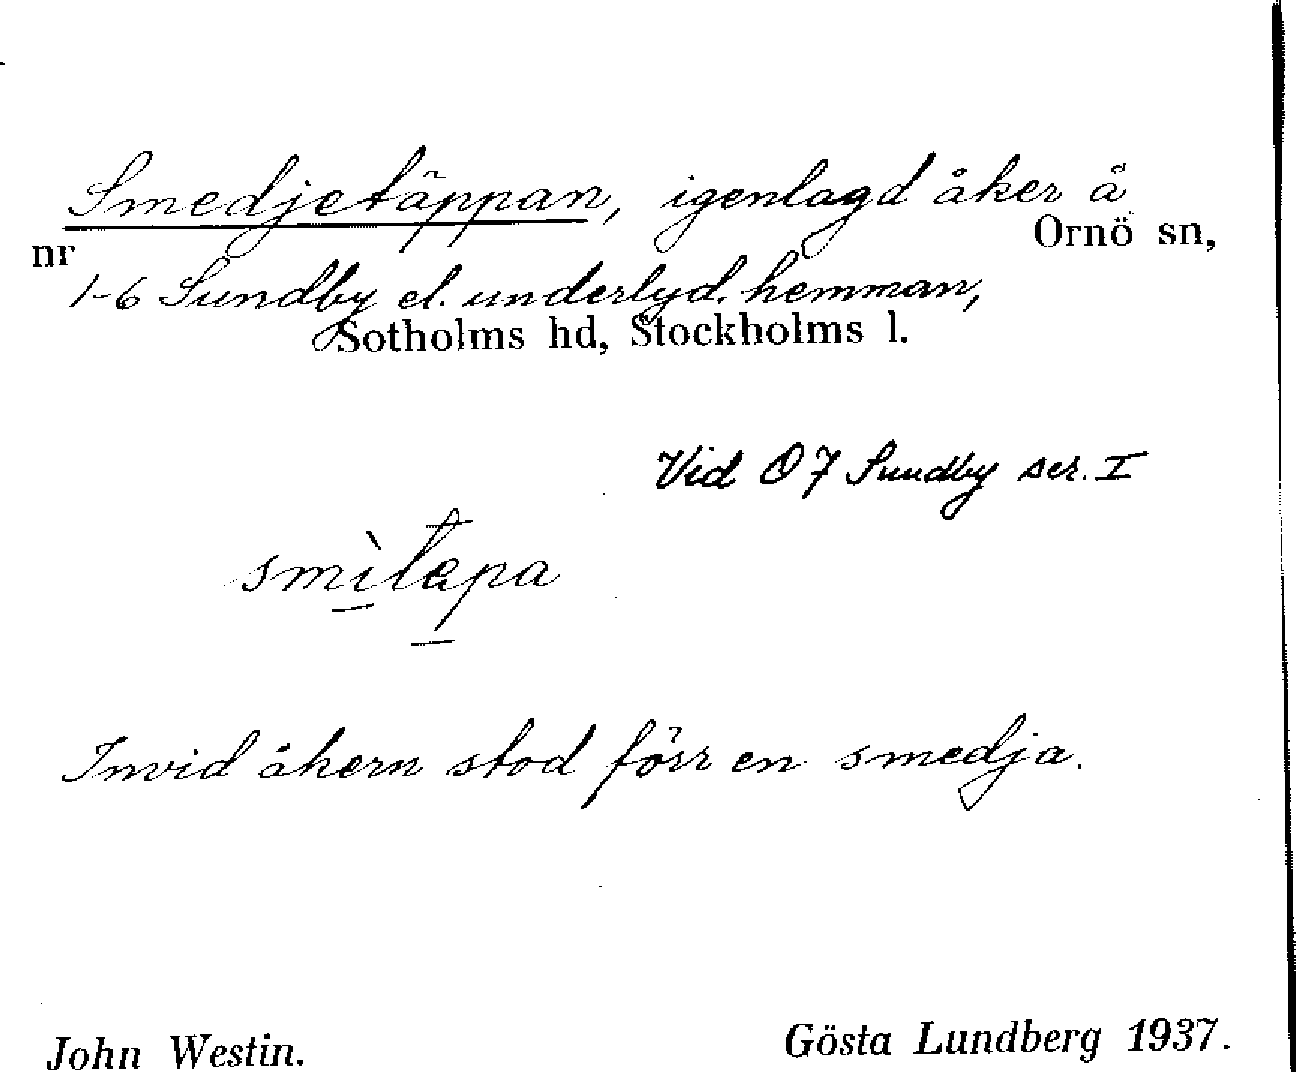 Smedjetäppan, igenlagd åker å
Ornö sn,
nr
1-6 Sundby el. underlyd. hemman,
Sotholms hd, Stockholms l.
Vid Ö7 Sundby ser. I
smìtäpa
Invid åkern stod förr en smedja.
John Westin.
Gösta Lundberg 1937.